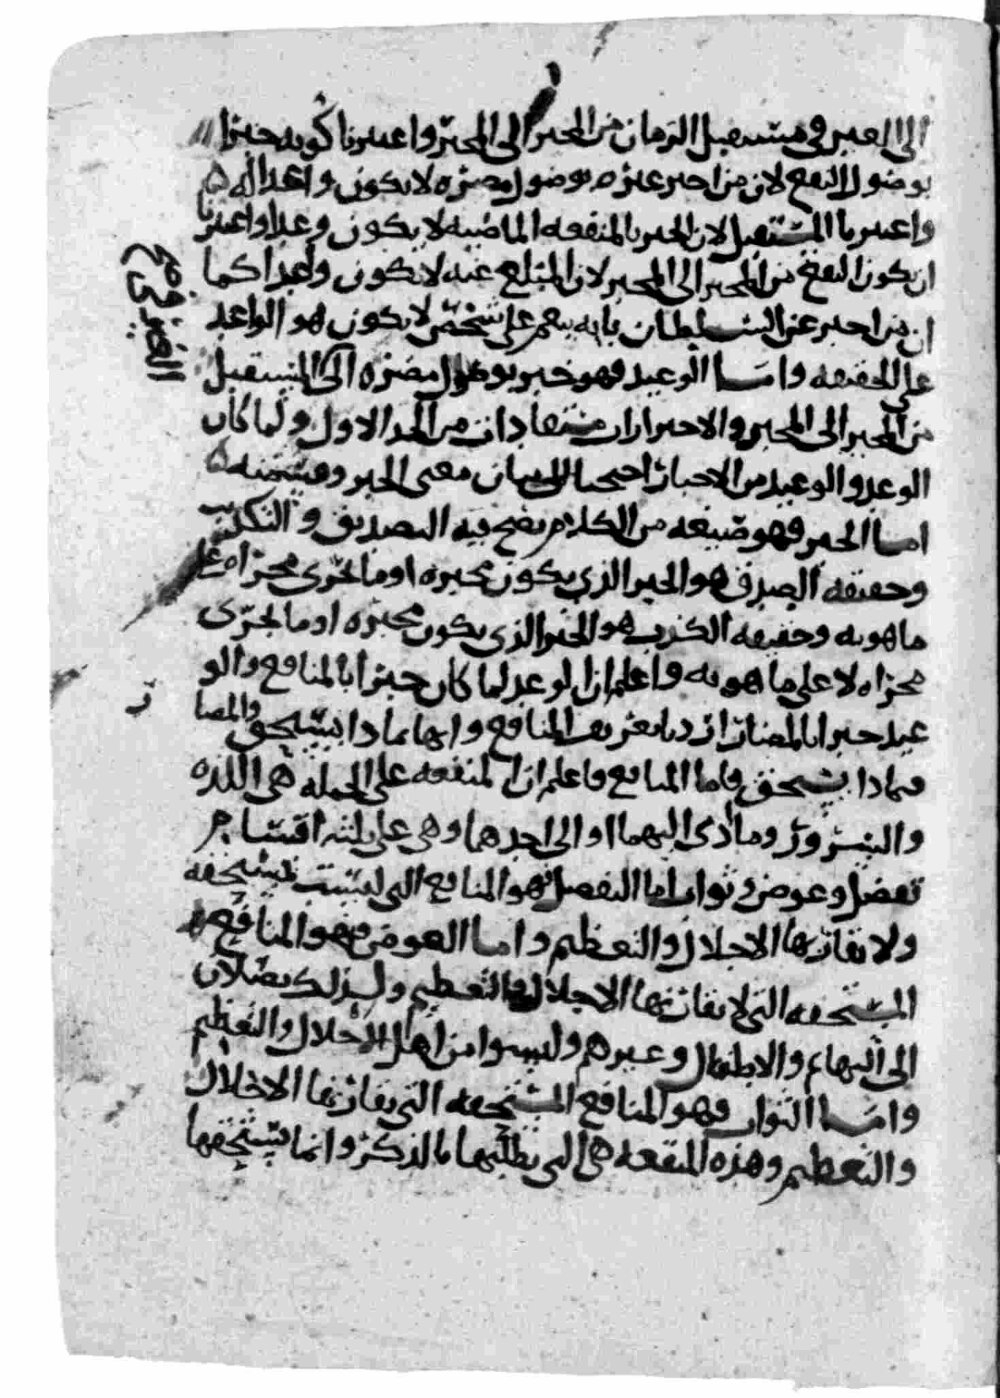 الى الغير في مستقبل الزمان من المخبر الى المخبر واعتبرنا كونه خبرا
بوصول النفع لان من اخبر غيره بوصول مضره لا يكون واعدا له
واعتبرنا المستقبل لان الخبر بالمنفعه الماضيه لا يكون وعدا واعتبرنا
ان يكون النفع من المخبر الى المخبر لان المبلغ عنه لا يكون واعدا كما
ان من اخبر عن السلطان بانه ينعم على شخص لا يكون هو الواعد
على الحقيقه واما الوعيد فهو خبر بوصول مضره الى المستقبل
من المخبر الى المخبر والاحترازات مستفادات من الحد الاول ولما كان
الوعد والوعيد من الاخبار احتجنا الى بيان معنى الخبر وقسمته
اما الخبر فهو صيغه من الكلام يصح فيه التصديق والتكذيب
وحقيقه الصدق هو الخبر الذي يكون مخبره او ما يجرى مجراه على
ما هو به وحقيقه الكذب هو الخبر الذي يكون مخبره او ما يجرى
مجراه لا على ما هو به واعلم ان الوعد لما كان خبرا بالمنافع والو
عيد خبرا بالمضار اردنا تعريف المنافع وانها بماذا تستحق والمضا
ر
وبماذا تستحق فاما المنافع فاعلم ان المنفعه على الجمله هي اللذه
والسرور وما ادى اليهما او الى احدهما وهي على ثلثه اقسام
تفضل وعوض وثواب اما التفضل فهو المنافع التي ليست بمستحقه
ولا يقارنها الاجلال والتعظيم واما العوض فهو المنافع
المستحقه التي لا يقارنها الاجلال والتعظيم ولذلك يصلان
الى البهائم والاطفال وغيرهم وليسوا من اهل الاجلال والتعظيم
واما الثواب فهو المنافع المستحقه التي يقارنها الاجلال
والتعظيم وهذه المنفعه هي التي نطلبها بالذكر وانما يستحقها